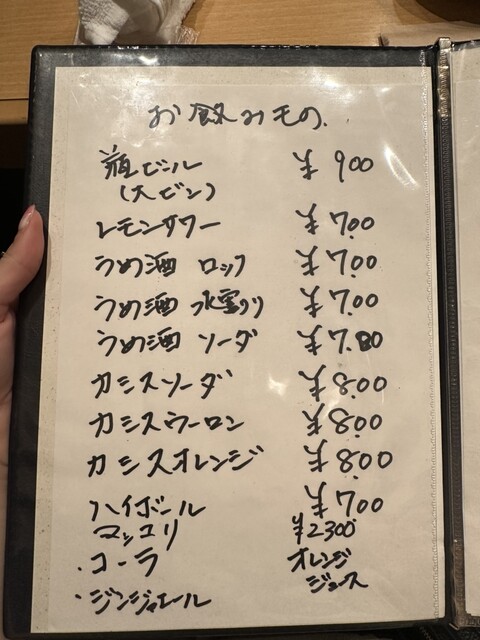 お飲みもの.
瓶ビール ¥900
(大ビン)
レモンサワー ¥700
うめ酒 ロック ¥700
うめ酒 水割り ¥700
うめ酒 ソーダ ¥780
カシスソーダ ¥800
カシスウーロン ¥800
カシスオレンジ ¥800
ハイボール ¥700
マッコリ ¥2300
・コーラ オレンジ
ジュース
・ジンジャエール